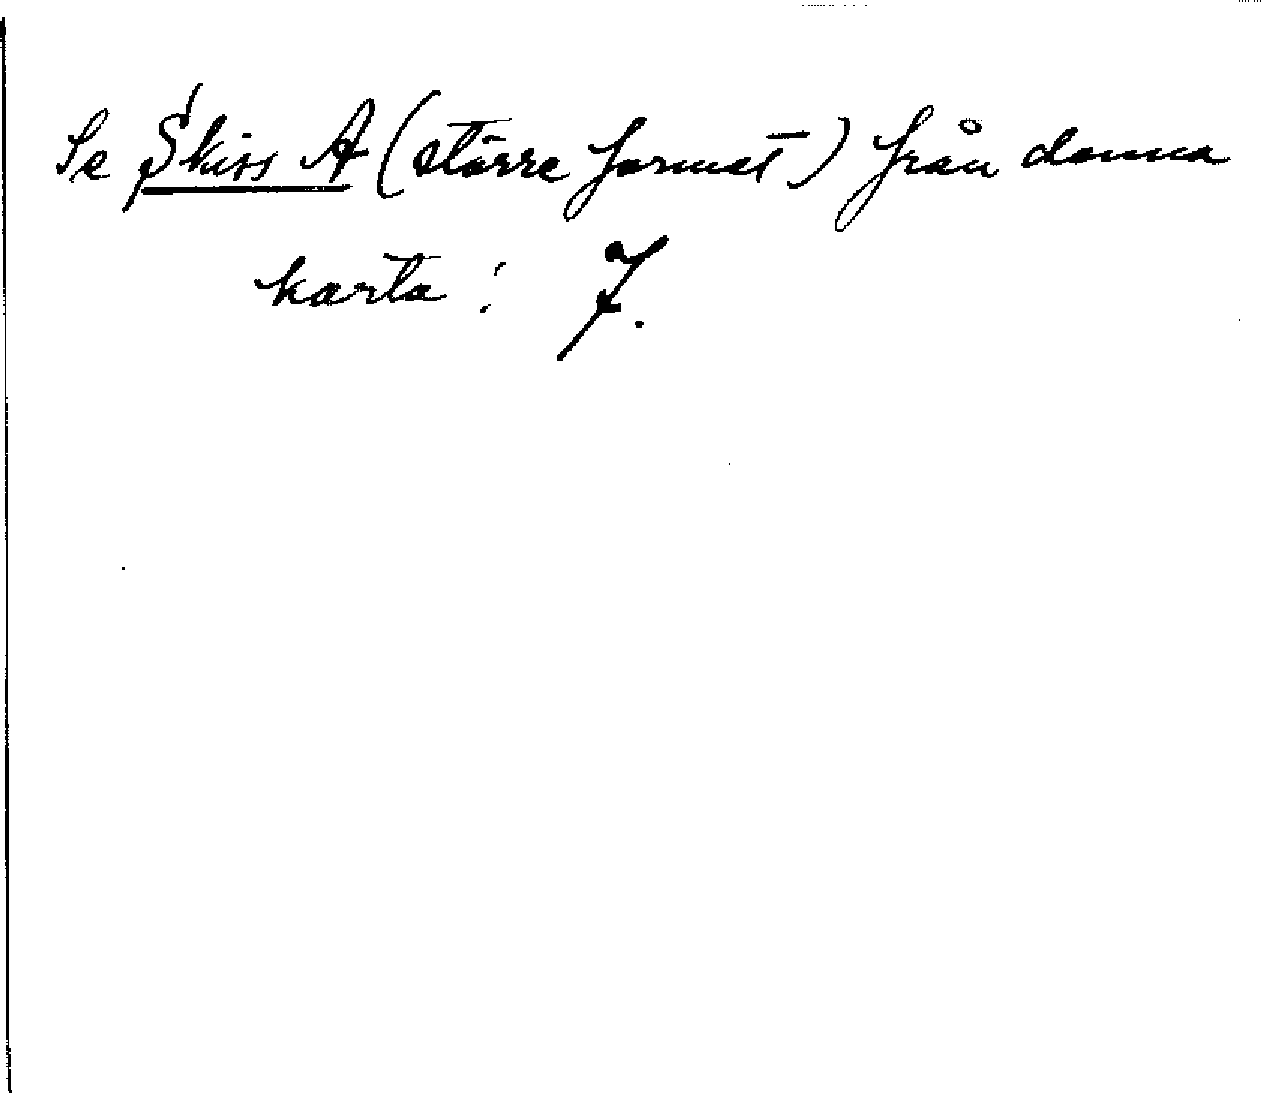 Se Skiss A (större format) från denna
karta: 7.